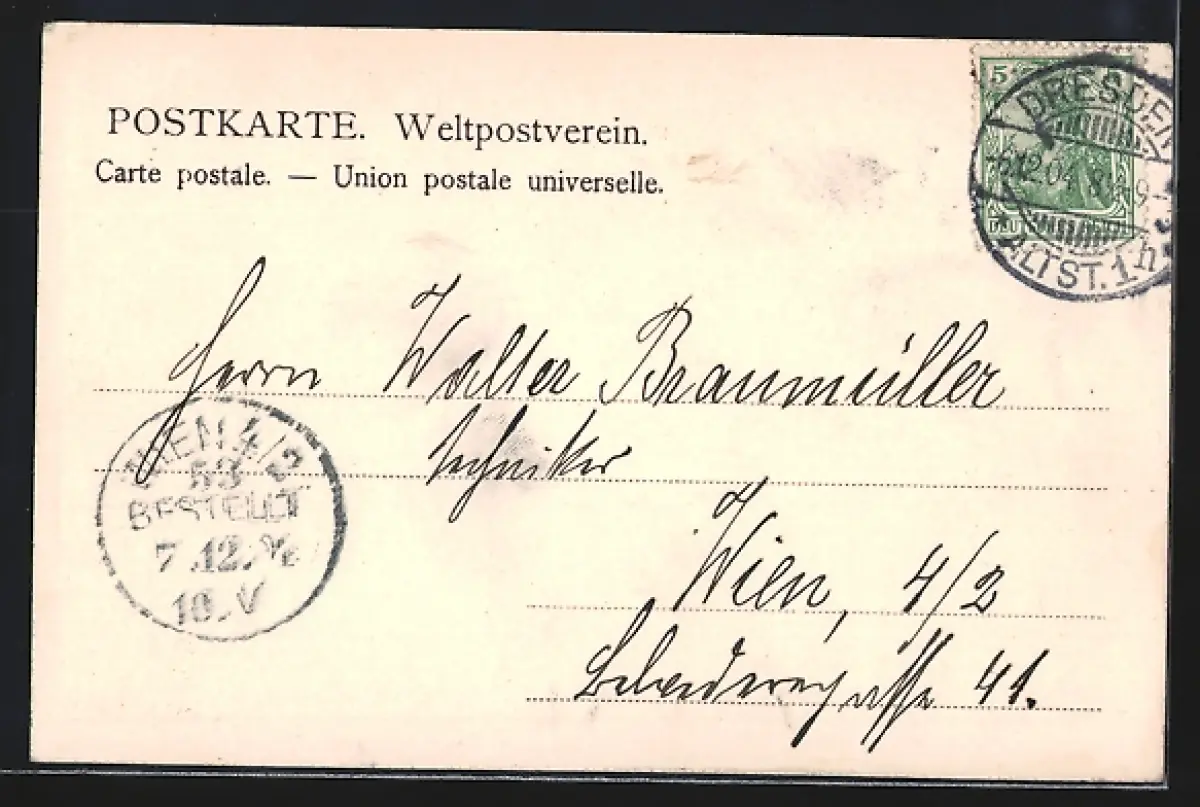 POSTKARTE. Weltpostverein.
Carte postale. — Union postale universelle.
5
DRESDEN
-6.12.04 8-9
* ALTST. 1 h
Herrn Walter Braumüller
Techniker
Wien, 4/2
Belvederegasse 41.
WIEN 4/2
53
BESTELLT
7.12.
10.V